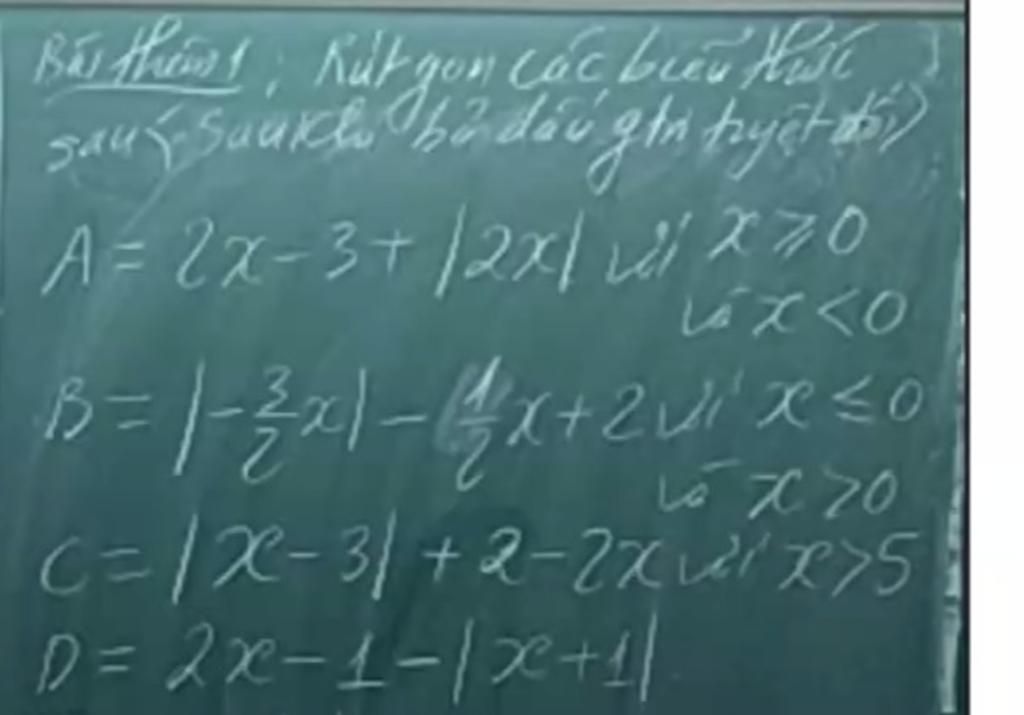 Bài thêm 1 : Rút gọn các biểu thức
sau (sau khi bỏ dấu gtrị tuyệt đối)
A = 2x - 3 + |2x| với x ⩾ 0
và x < 0
B = |-3/2x| - 1/2x + 2 với x ≤ 0
và x > 0
C = |x - 3| + 2 - 2x với x > 5
D = 2x - 1 - |x + 1|